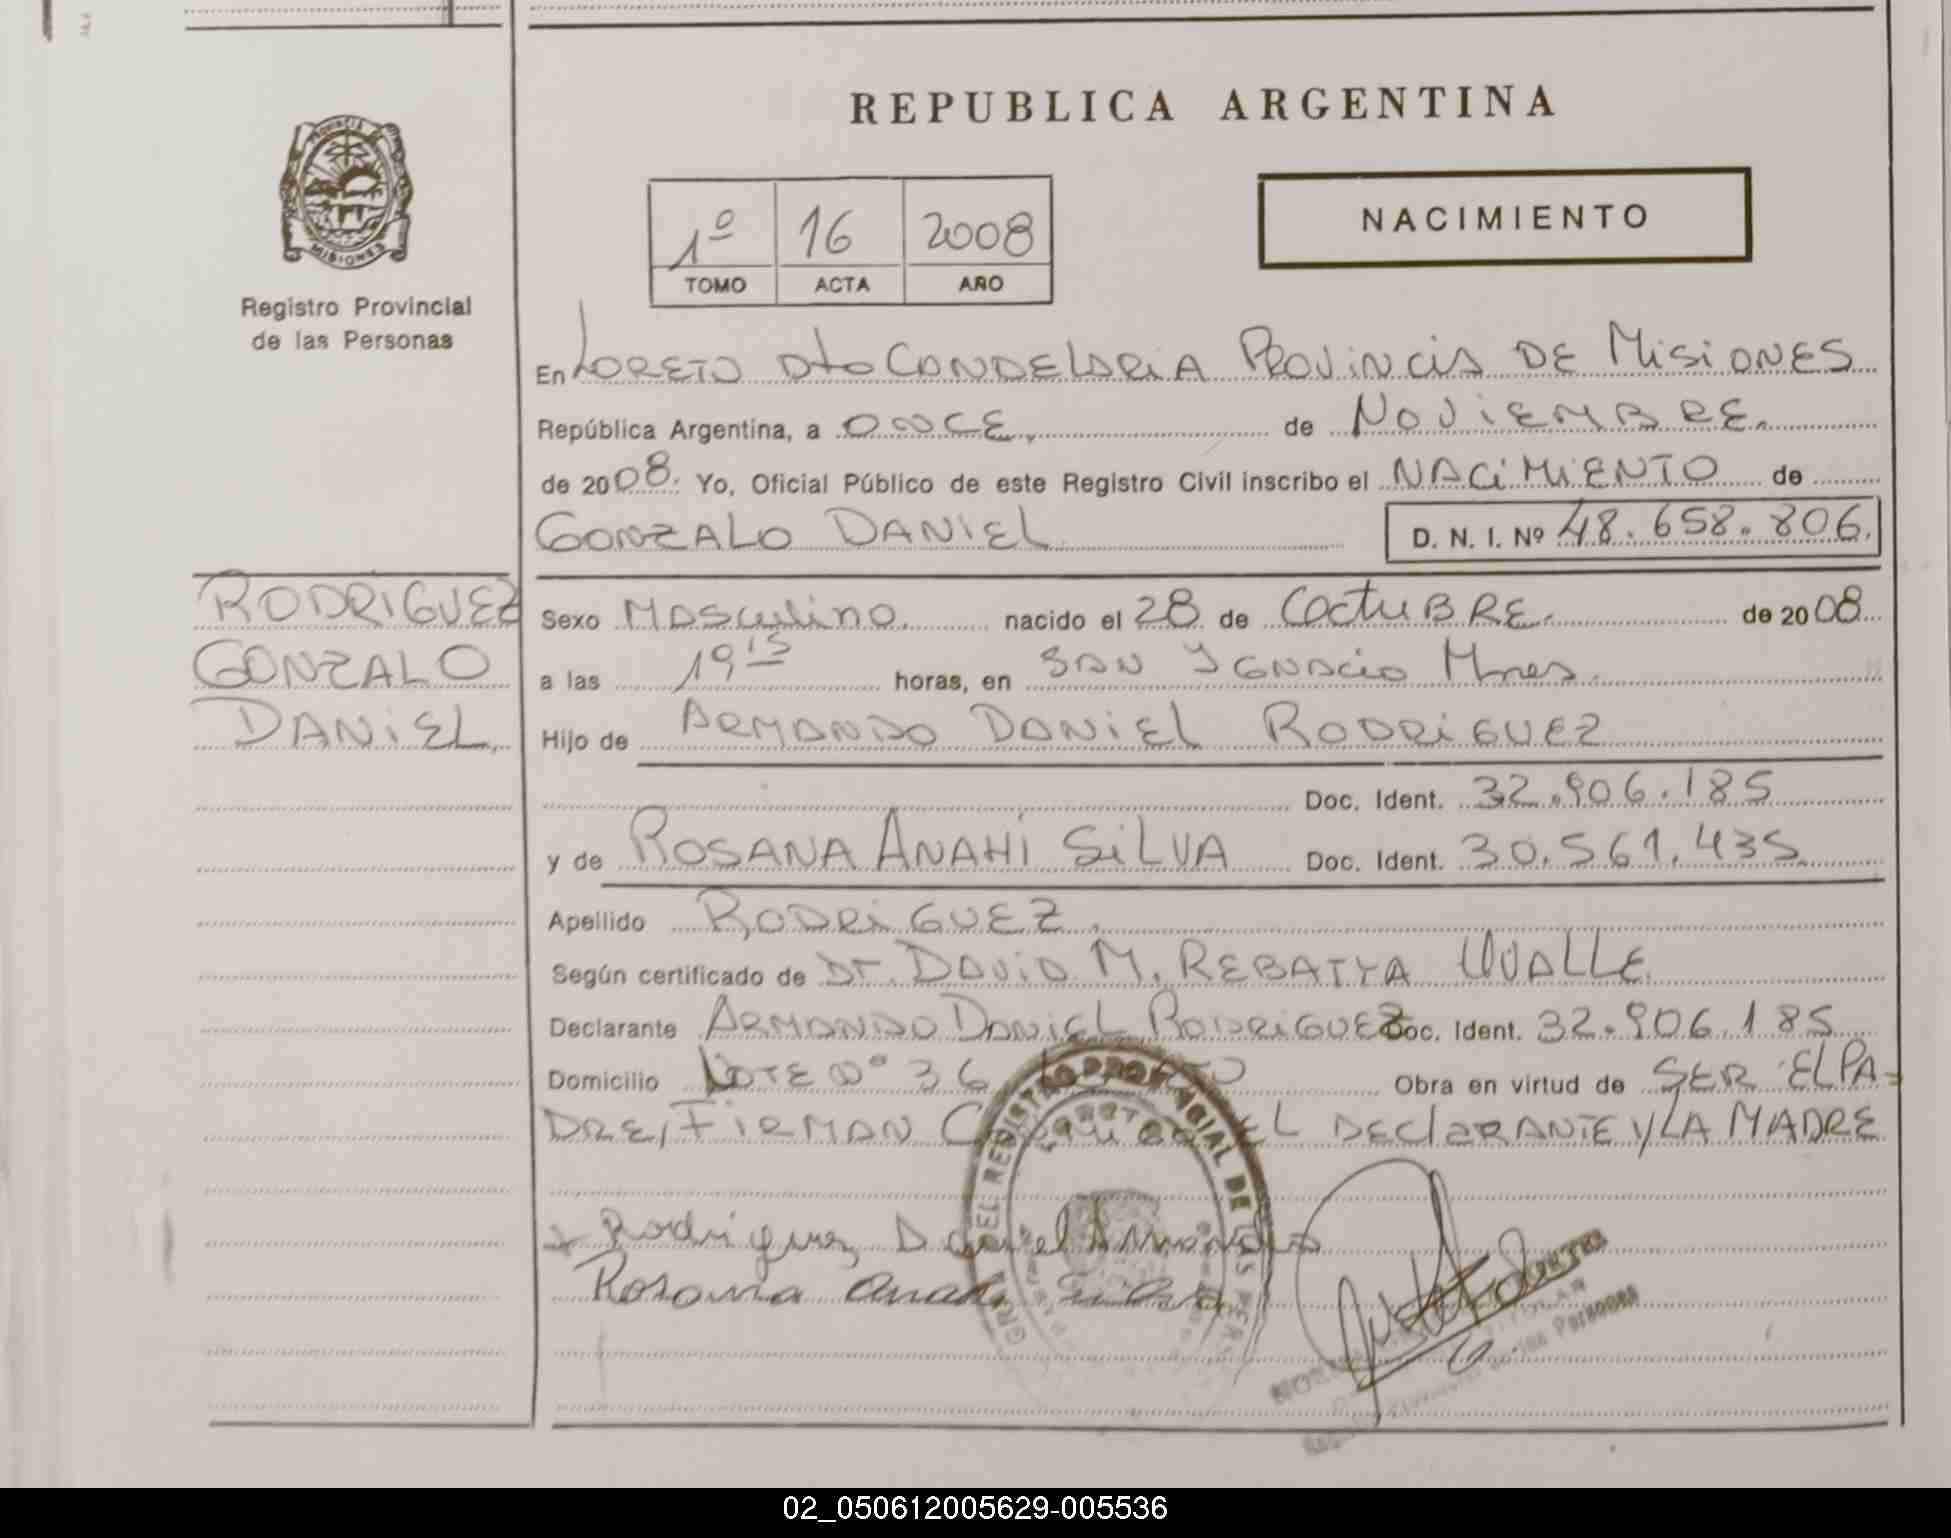 REPUBLICA ARGENTINA
PROVINCIA DE MISIONES
Registro Provincial
de las Personas
1º 16 2008
TOMO ACTA AÑO
NACIMIENTO
En LORETO Dto CANDELARIA PROVINCIA DE MISIONES
República Argentina, a ONCE. de NOVIEMBRE.
de 2008. Yo, Oficial Público de este Registro Civil inscribo el NACIMIENTO de
GONZALO DANIEL D. N. I. Nº 48.658.806.
RODRIGUEZ
GONZALO
DANIEL.
Sexo MASculino. nacido el 28 de OctuBRE. de 2008
a las 19 15 horas, en SAN IGNACIO Mnes.
Hijo de ARMANDO DANIEL RODRIGUEZ
Doc. Ident. 32.906.185
y de ROSANA ANAHI SILVA Doc. Ident. 30.561.435
Apellido RODRIGUEZ.
Según certificado de Dr. DAVID M. REBATTA UVALLE.
Declarante ARMANDO DANIEL RODRIGUEZ Doc. Ident. 32.906.185
Domicilio LOTE Nº 36 Obra en virtud de SER EL PA-
DRE, FIRMAN EL DECLARANTE Y LA MADRE
Rodriguez Daniel Armando
Rosana Anahi Silva
DEL REGISTRO PROVINCIAL DE LAS PERS
02_050612005629-005536